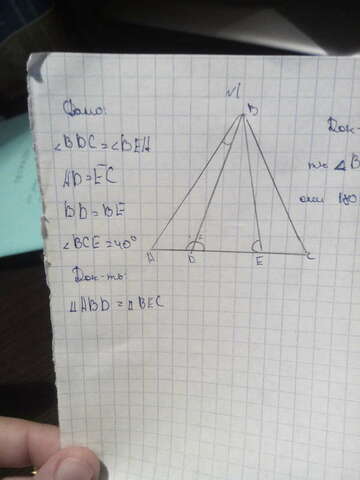 Дано:
∠BDC = ∠BEA
AD = EC
BD = BE
∠BCE = 40°
Док-ть:
△ABD = △BEC
B
A
D
E
C
Док-
то △B